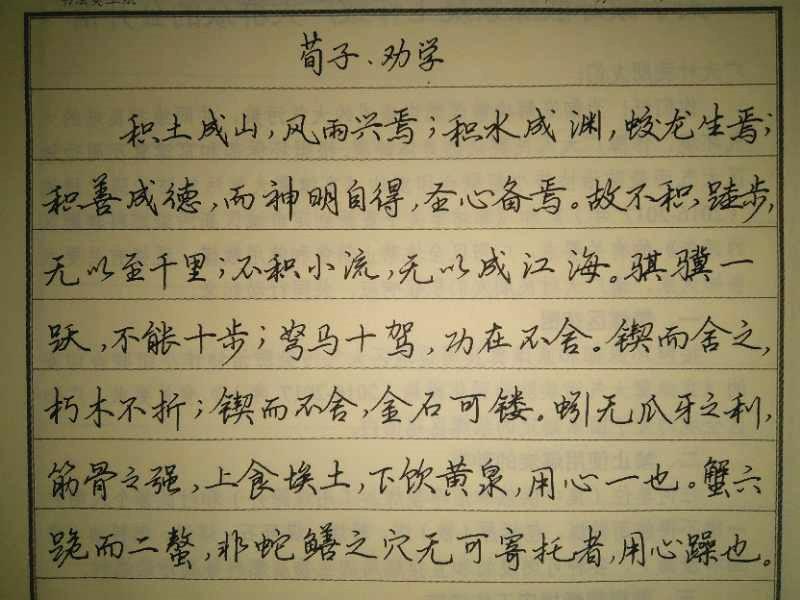 荀子、劝学
积土成山,风雨兴焉;积水成渊,蛟龙生焉;
积善成德,而神明自得,圣心备焉。故不积跬步,
无以至千里;不积小流,无以成江海。骐骥一
跃,不能十步;驽马十驾,功在不舍。锲而舍之,
朽木不折;锲而不舍,金石可镂。蚓无爪牙之利,
筋骨之强,上食埃土,下饮黄泉,用心一也。蟹六
跪而二螯,非蛇鳝之穴无可寄托者,用心躁也。